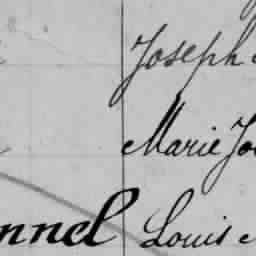 Joseph
Marie Jo
nnel Louis